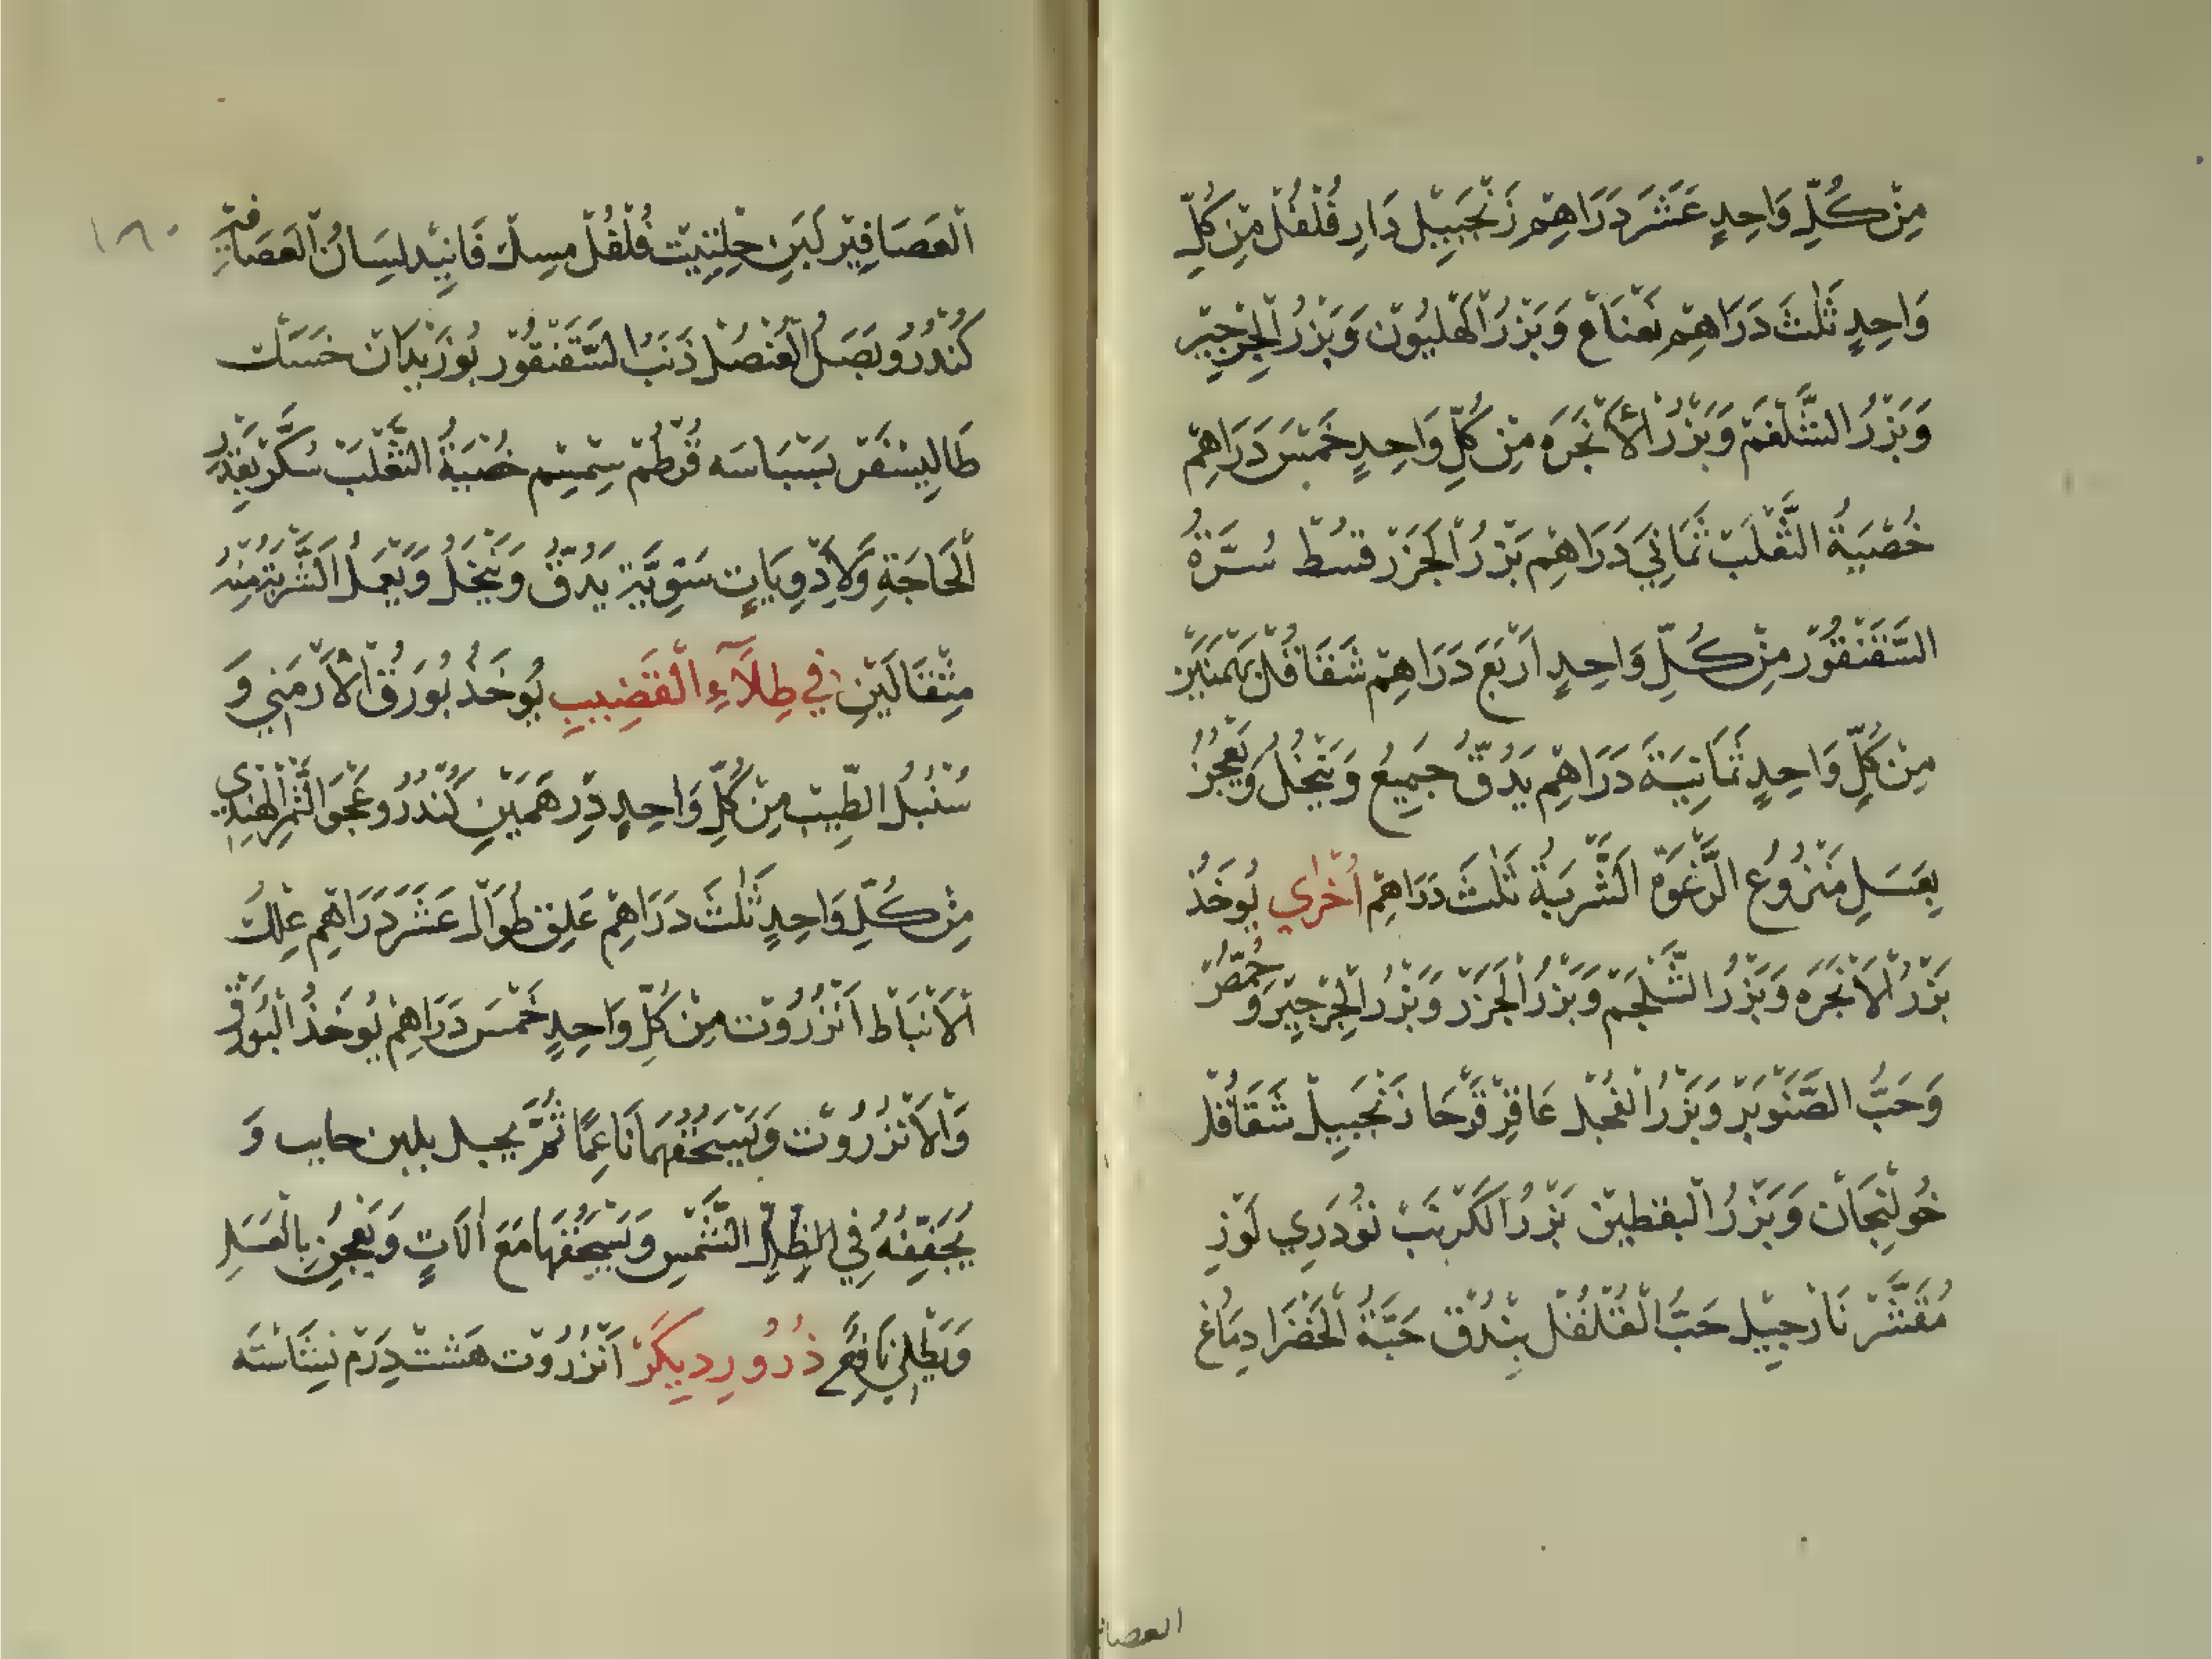 مِنْ كُلِّ وَاحِدٍ عَشَرَ دَرَاهِمِ زَنْجَبِيْل دَارِ فُلْفُلْ مِنْ كُلِّ
وَاحِدٍ ثَلٰثَ دَرَاهِمِ نَعْنَاعْ وَبَزْرُ الْهَلْيُوْن وَبَزْرُ الْجِرْجِيْر
وَبَزْرُ الشَّلْغَمْ وَبَزْرُ الْأَنْجَرَه مِنْ كُلِّ وَاحِدٍ خَمْسَ دَرَاهِمْ
خُصْيَةُ الثَّعْلَبْ ثَمَانِيَ دَرَاهِمْ بَزْرُ الْجَزَرْ قسْط سُرَّةُ
السَّقَنْقُوْر مِنْ كُلِّ وَاحِدٍ اَرْبَعَ دَرَاهِمْ شَقَاقُلْ بَهْمَنَيْن
مِنْ كُلِّ وَاحِدٍ ثَمَانِيَةَ دَرَاهِمْ يَدُقُّ جَمِيعُ وَيَنْخُلُ وَيَعْجِنُ
بِعَسَلِ مَنْزُوعُ الرَّغْوَة الشَّرْبَةُ ثَلٰثَ دَرَاهِمْ اُخْرٰي يُوخَذُ
بَزْرُ الْاَنْجَرَه وَبَزْرُ الشَّلْجَمْ وَبَزْرُ الْجَزَرْ وَبَزْرُ الْجِرْجِيْر وَ حُمَّصُ
وَحَبُّ الصَّنَوْبَرْ وَبَزْرُ الْفُجْل عَاقِرْقَرْحَا زَنْجَبِيلْ شَقَاقُلْ
خُولِنْجَانْ وَبَزْرُ الْيَقْطِيْن بَزْرُ الْكَرْنَبْ تُوْدَرِي لَوْزِ
مُقَشَّرْ نَارْجِيْل حَبُّ الْفُلْفُلْ بِنْدُقْ حَبَّةُ الْخَضْرَا دِمَاغ
العصا
١٨٠
الْعَصَافِيْر لَبَنِ حِلْتِيْت فُلْفُلْ مِسْك فَانِيْد لِسَانُ الْعَصَافِيْر
كُنْدُرُ وبَصَلُ الْعُنْصُلْ ذَنَبُ السَّقَنْقُوْر بُوْزَيْدَانْ خَسَكْ
طَالِيسْفَرْ بَسْبَاسَه قُرْطُمْ سِمْسِم خُصْيَةُ الثَّعْلَبْ سُكَّرْ بِقَدْرِ
الْحَاجَةِ وَلاَدْوِيَاتٍ سَوِيَّة يَدُقُّ وَيَنْخُلُ وَيَعْمَلُ الشَّرْبَةُ مِنْهُ
مِثْقَالَيْنِ فِي طِلَآءِ الْقَضِيبِ يُوخَذُ بُورَقُ الْأَرْمَنِي وَ
سُنْبُلُ الطِّيْبْ مِنْ كُلِّ وَاحِدٍ دِرْهَمَيْنِ كُنْدُرُ وعَجْوَ التَّمْرِ الْهِنْدِي
مِنْ كُلِّ وَاحِدٍ ثَلٰثَ دَرَاهِمْ عَلِقْ طُوَالْ عَشَرَ دَرَاهِمْ عِلْكُ
الْاَنْبَاط اَنْزَرُوْت مِنْ كُلِّ وَاحِدٍ خَمْسَ دَرَاهِمْ يُوخَذُ الْبُوْرَقْ
وَالْاَنْزَرُوْت وَيَسْحَقُهُمَا نَاعِمًا ثُمَّ يجبل بلبن حليب وَ
يُجَفِّفُهُ فِي الظِّلِّ الشَّمْسِ وَيَسْحَقُهَا مَعَ اٰلاتٍ وَيَعْجِنُ بِالْعَسَلِ
وَيَطْلِي نَافِعٌ ذُرُورِ دِيكَرْ اَنْزَرُوْت هَشْتْ دِرَمْ نِشَاسْتَه